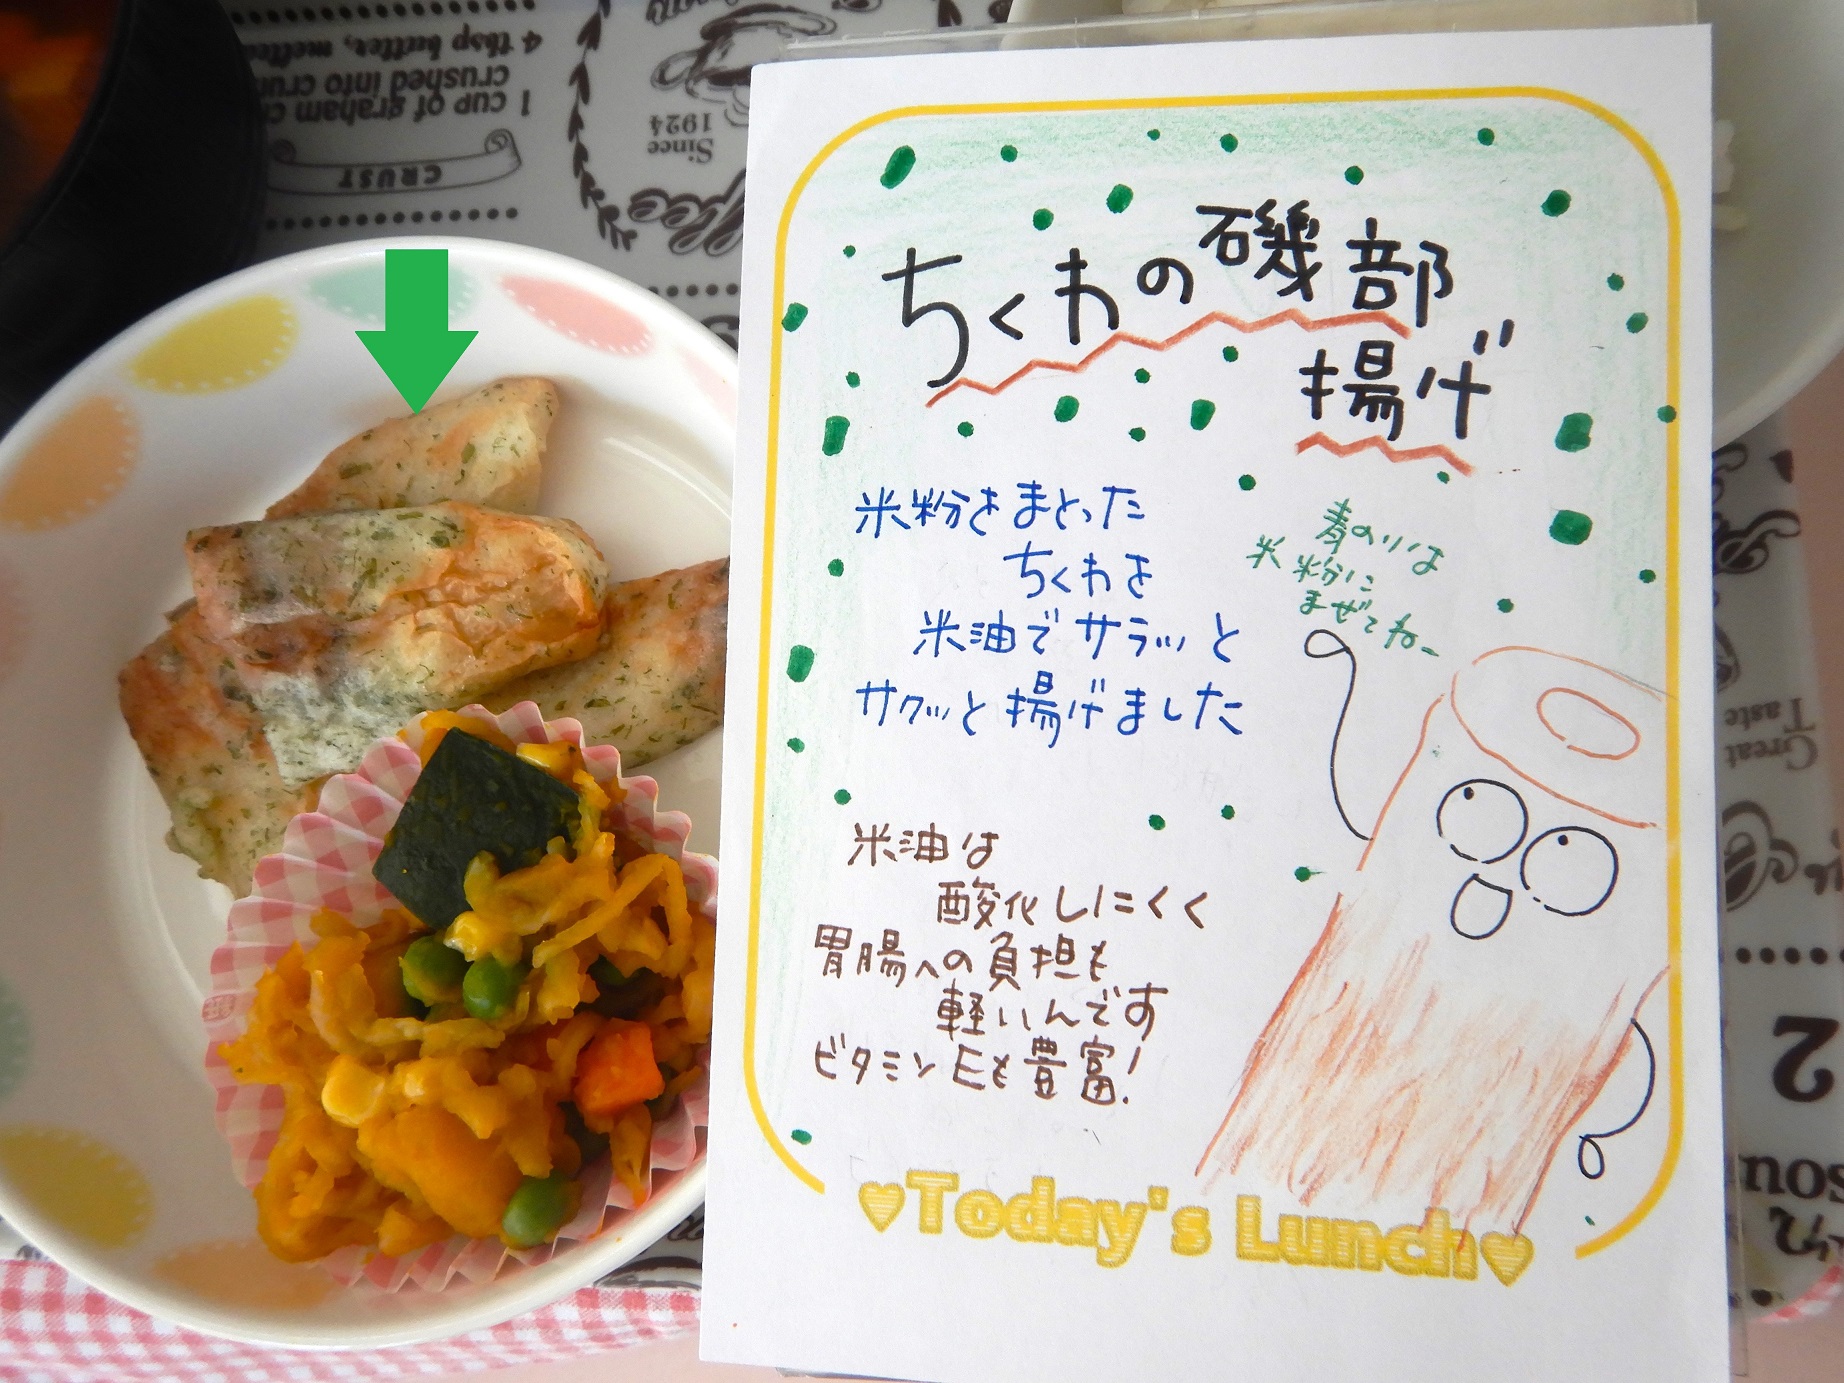 ちくわの磯部
揚げ
米粉をまとった
ちくわを
米油でサラッと
サクッと揚げました
青のりは
米粉に
まぜてねー
米油は
酸化しにくく
胃腸への負担も
軽いんです
ビタミンEも豊富!
♥Today's Lunch♥
4 tbsp butter, melted
crushed into
1 cup of graham
CRUST
Since
1924
Coffee
Great
Taste
2